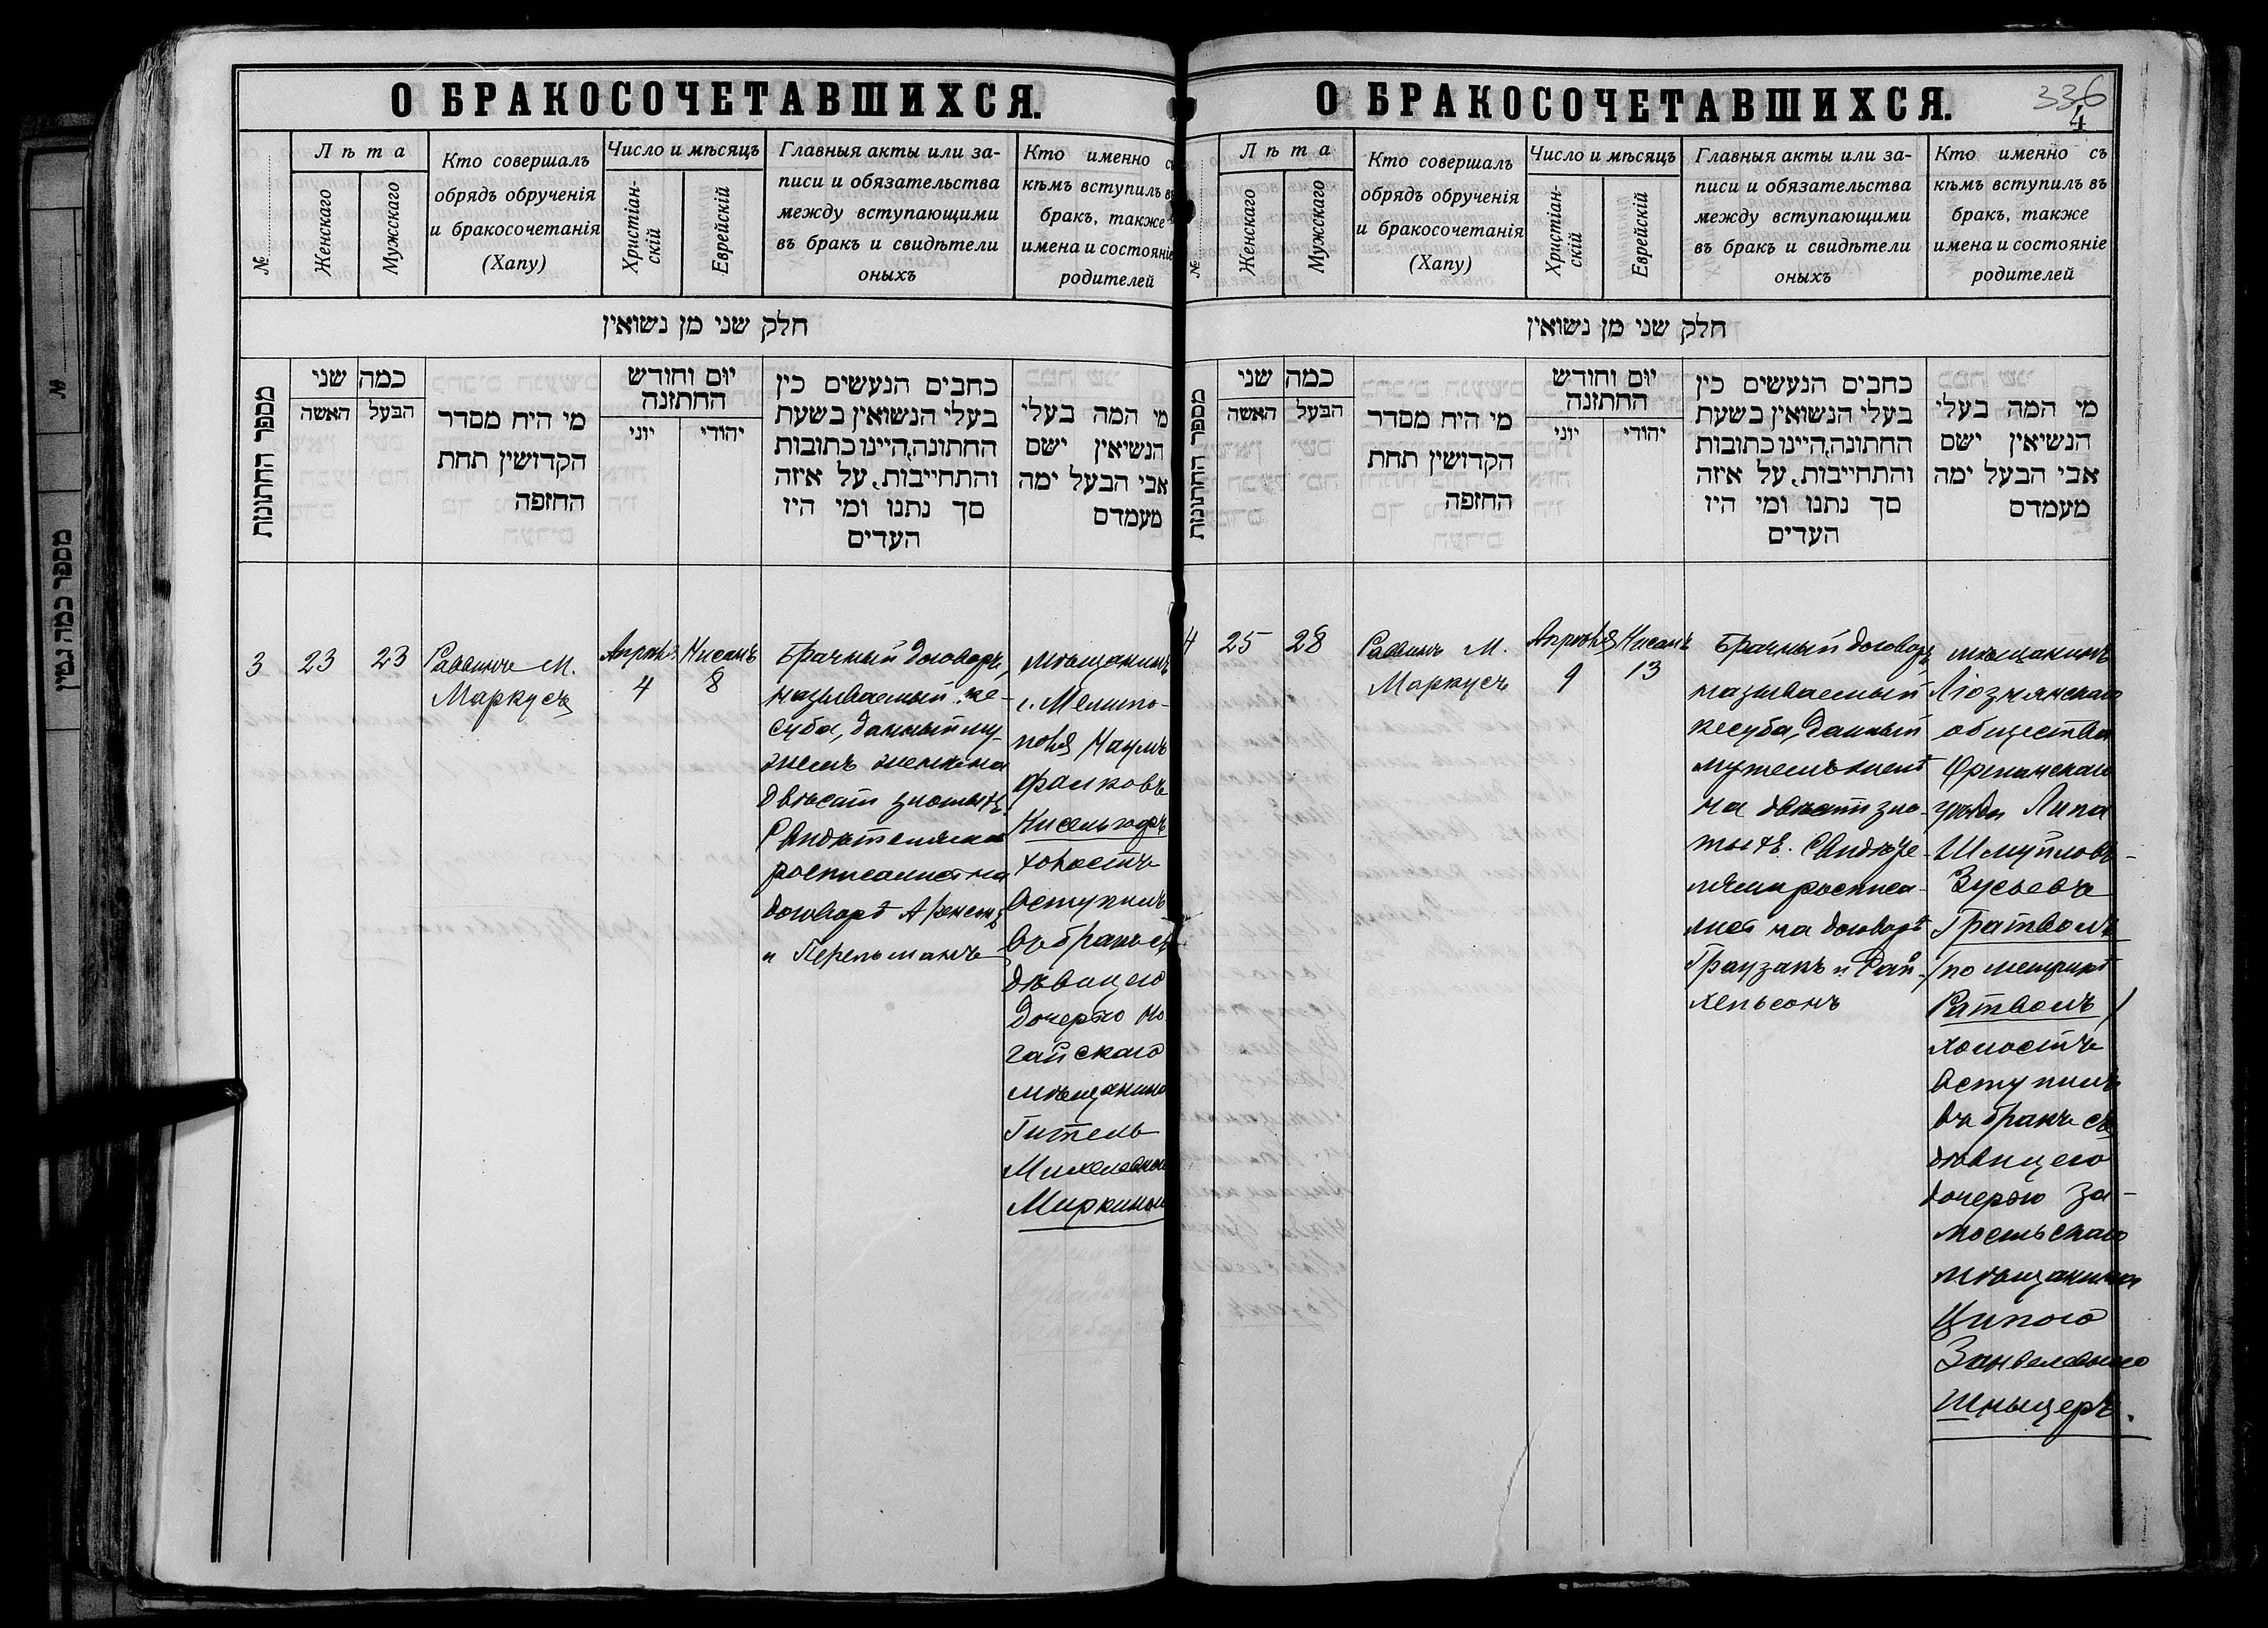 О БРАКОСОЧЕТАВШИХСЯ.
№
Лѣта
Женскаго
Мужскаго
Кто совершалъ
обрядъ обрученія
и бракосочетанія
(Хапу)
Число и мѣсяцъ
Христіан-
скій
Еврейскій
Главныя акты или за-
писи и обязательства
между вступающими
въ бракъ и свидѣтели
оныхъ
Кто именно съ
кѣмъ вступилъ въ
бракъ, также
имена и состояніе
родителей
חלק שני מן נשואין
מספר החתונות
כמה שני
האשה
הבעל
מי היח מסדר
הקדושין תחת
החזפה
יום וחודש
החתזנה
יוני
יהודי
כחבים הנעשים כין
בעלי הנשואין בשעת
החתונה, היינו כתובות
והתחייבות, על איזה
סך נתנו ומי היז
העדים
מי המה בעלי
הנשיאין ישם
אבי הבעל ימה
מעמדם
3
23
23
Раввинъ М.
Маркусъ
Апрѣля
4
Нисанъ
8
Брачный договоръ,
называемый ке-
суба, данный му-
жемъ женѣ на
двѣсти злотыхъ.
Свидѣтелями
росписались на
договорѣ Аренсонъ
и Перельманъ
мѣщанинъ
г. Мелито-
поля Наумъ
Фалковъ
Кисельгофъ
холостъ
вступилъ
въ бракъ съ
дѣвицею
дочерью но-
гайскаго
мѣщанина
Гитель
Михелевною
Миркиною
О БРАКОСОЧЕТАВШИХСЯ.
336
4
№
Лѣта
Женскаго
Мужскаго
Кто совершалъ
обрядъ обрученія
и бракосочетанія
(Хапу)
Число и мѣсяцъ
Христіан-
скій
Еврейскій
Главныя акты или за-
писи и обязательства
между вступающими
въ бракъ и свидѣтели
оныхъ
Кто именно съ
кѣмъ вступилъ въ
бракъ, также
имена и состояніе
родителей
חלק שני מן נשואין
מספר החתונות
כמה שני
האשה
הבעל
מי היח מסדר
הקדושין תחת
החזפה
יום וחודש
החתזנה
יוני
יהודי
כחבים הנעשים כין
בעלי הנשואין בשעת
החתונה, היינו כתובות
והתחייבות, על איזה
סך נתנו ומי היז
העדים
מי המה בעלי
הנשיאין ישם
אבי הבעל ימה
מעמדם
4
25
28
Раввинъ М.
Маркусъ
Апрѣля
9
Нисанъ
13
Брачный договоръ
называемый
кесуба, данный
мужемъ женѣ
на двѣсти зло-
тыхъ. Свидѣте-
лями росписа-
лись на договорѣ
Граузанъ и Рай-
хельсонъ
мѣщанинъ
Ліознянскаго
общества
Оршанскаго
уѣзда Липа
Шмуйловъ-
Зусьевъ
Гратволъ
/по метрикѣ
Ратволъ/
холостъ
вступилъ
въ бракъ съ
дѣвицею
дочерью за-
мостьскаго
мѣщанина
Ципою
Занвелевною
Шныцеръ.
№
מספר כמה גטין